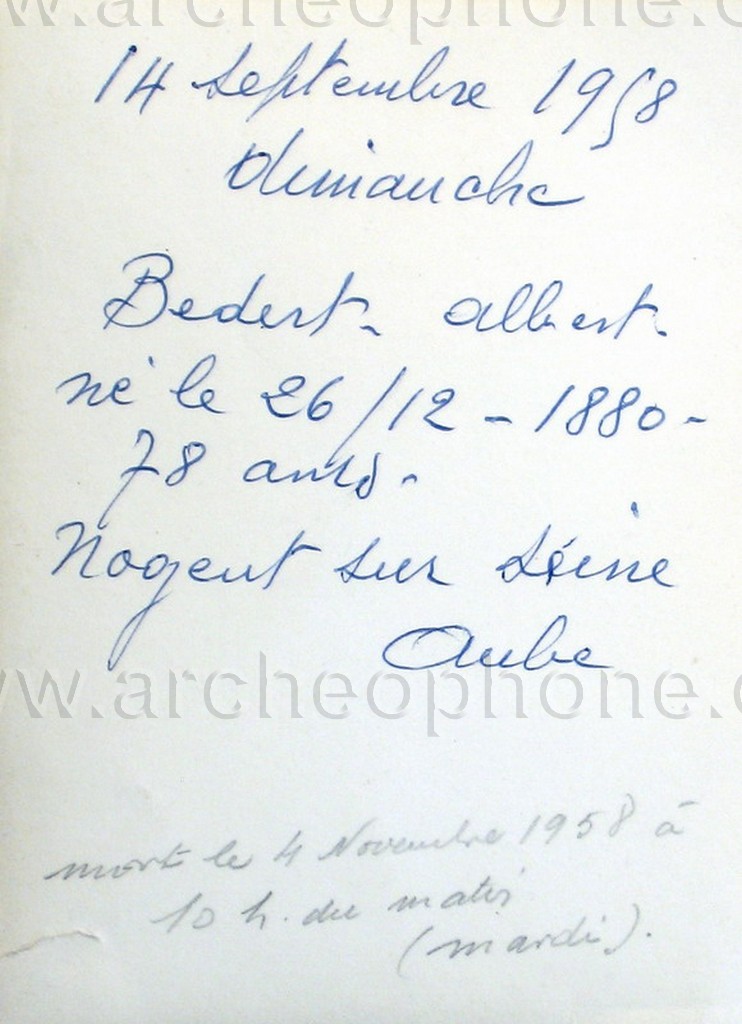 www.archeophone.c
14 septembre 1958
dimanche
Bedert - albert -
né le 26/12 - 1880 -
78 ans -
Nogent sur Seine
Aube
www.archeophone.c
mort le 4 Novembre 1958 à
10 h. du matin
(mardi).